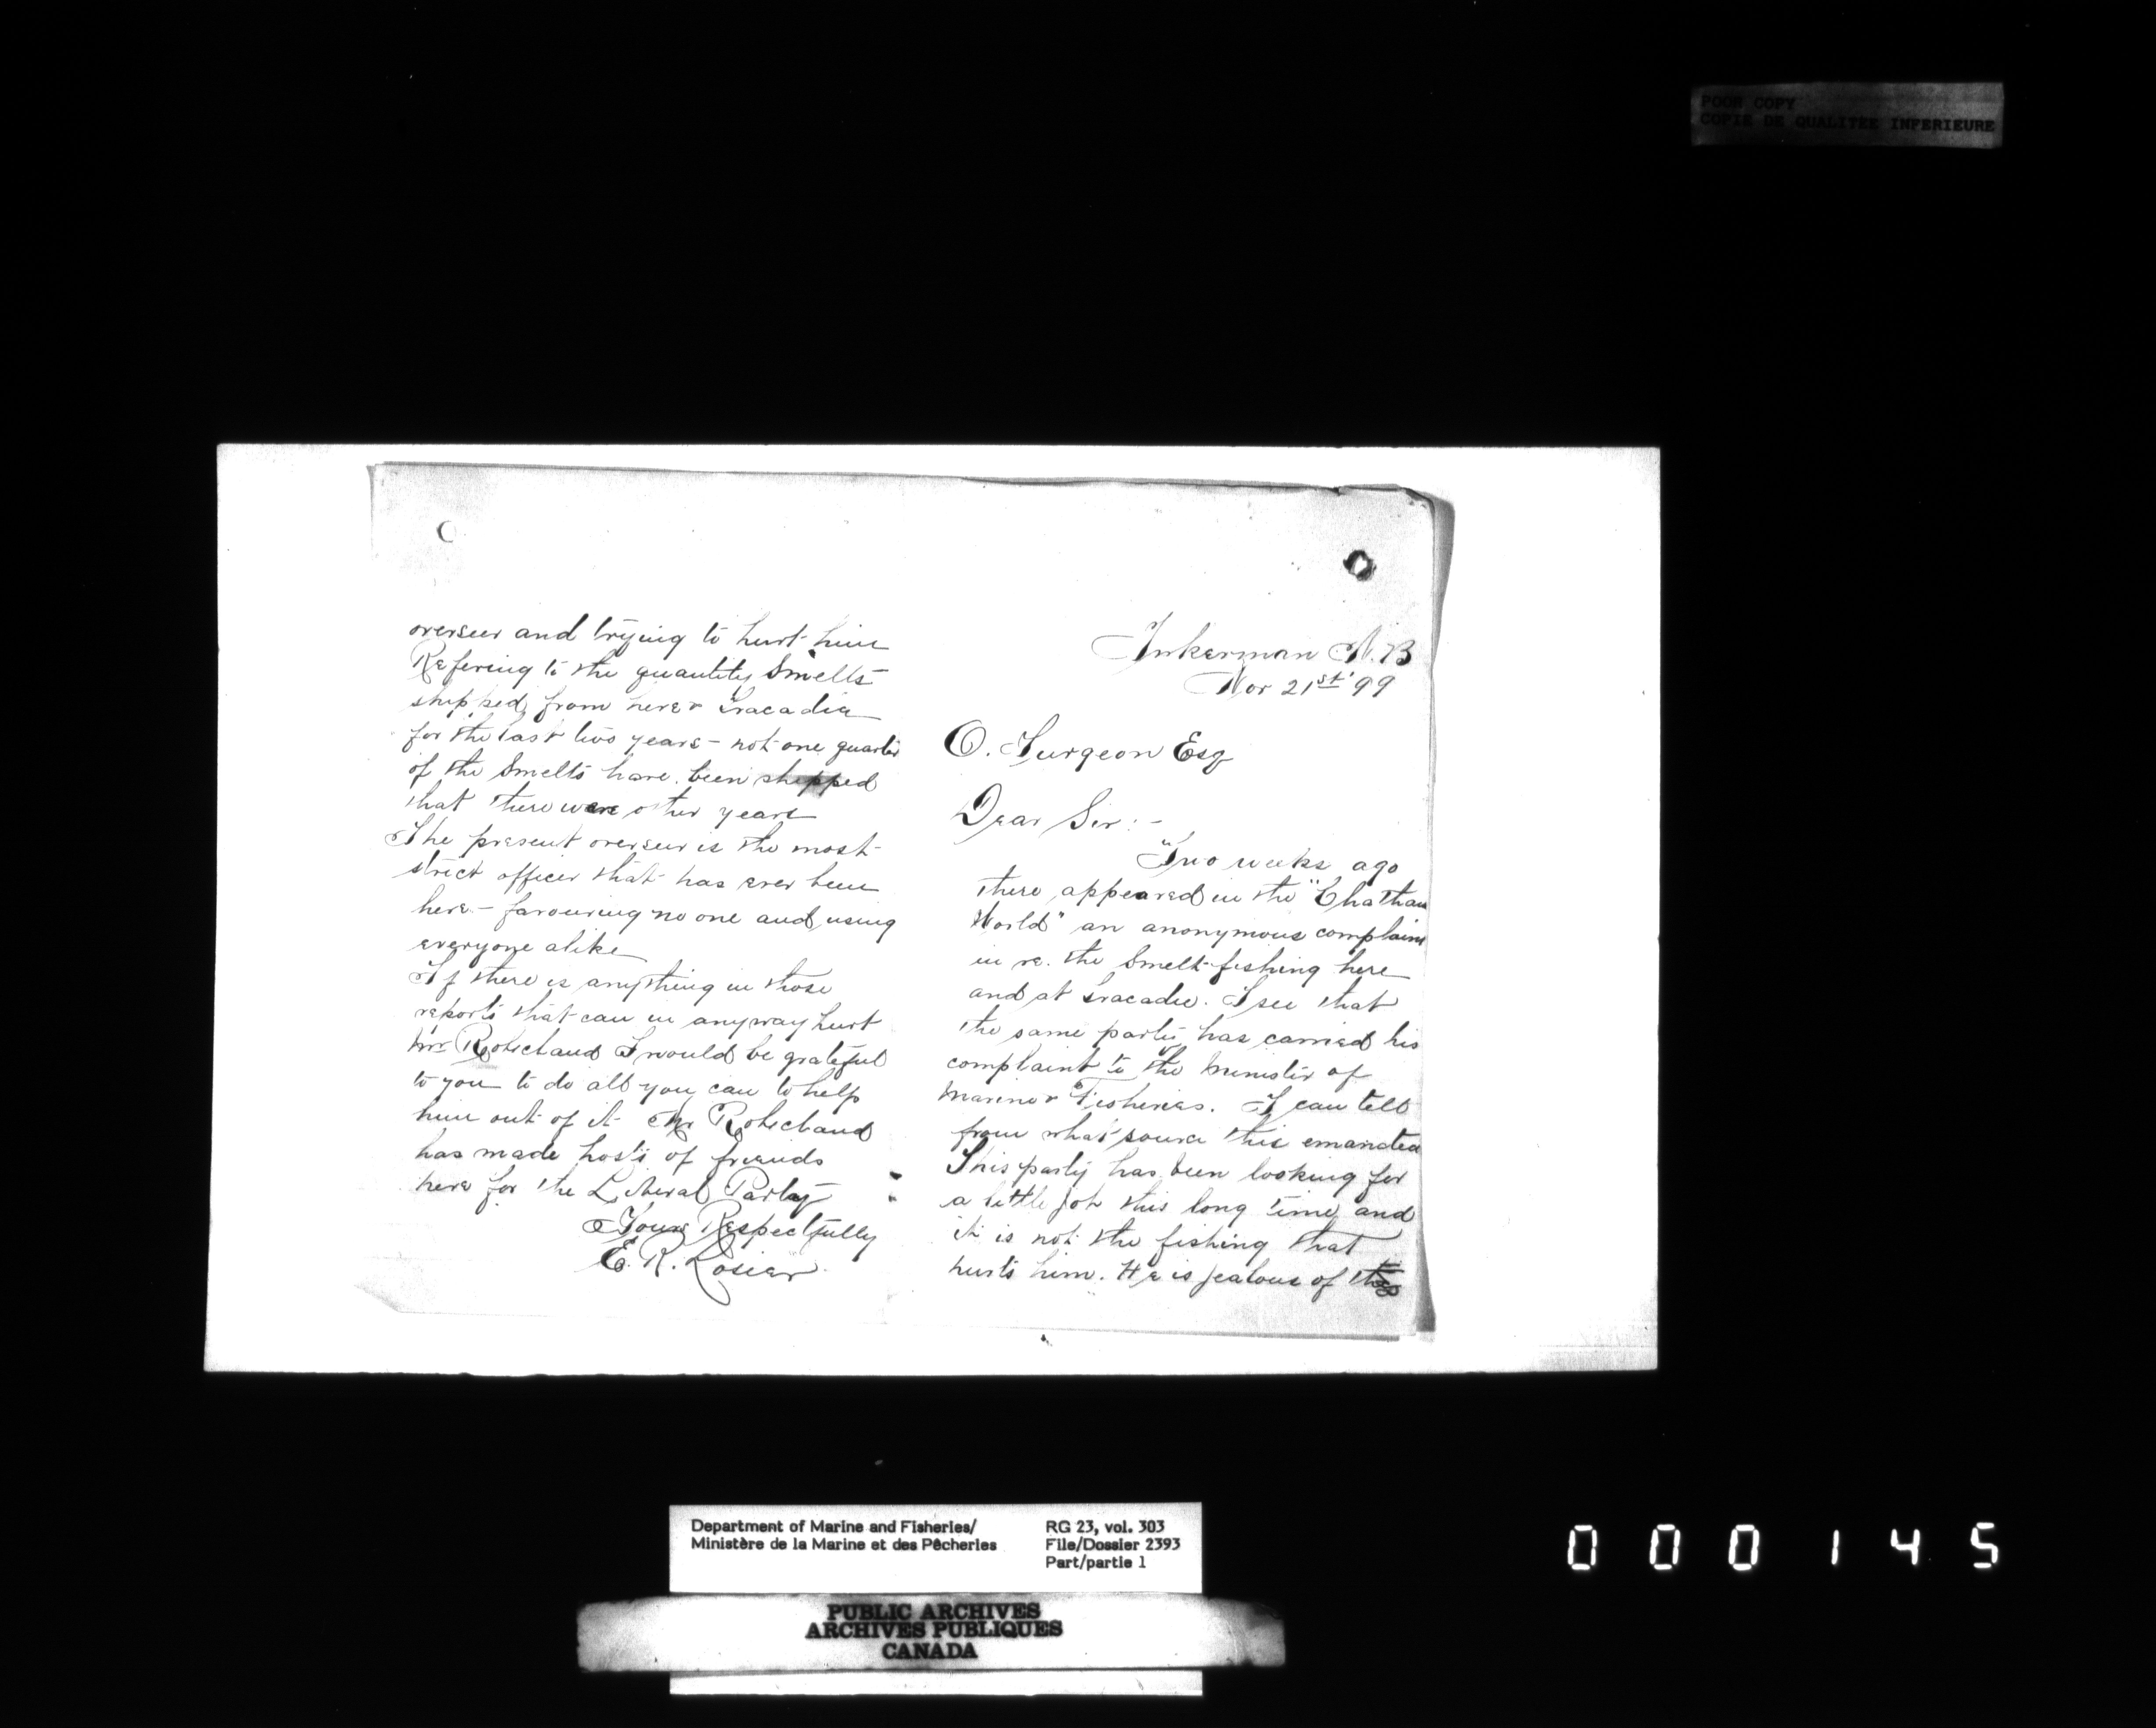 POOR COPY
COPIE DE QUALITEE INFERIEURE
Inkerman N.B
Nov 21st '99
O. Turgeon Esq
Dear Sir:-
Two weeks ago
there appeared in the "Chatham
World" an anonymous complaint
in re. the Smelt fishing here
and at Tracadie. I see that
the same party has carried his
complaint to the Minister of
Marine & Fisheries. I can tell
from what source this emanated
This party has been looking for
a little job this long time and
it is not the fishing that
hurts him. He is jealous of the
overseer and trying to hurt him
Refering to the quantity Smelts
shipped from here & Tracadie
for the last two years - not one quarter
of the Smelts have been shipped
that there were other years
The present overseer is the most
strict officer that has ever been
here - favouring no one and using
everyone alike
If there is anything in those
reports that can in anyway hurt
Mr Robichaud I would be grateful
to you to do all you can to help
him out of it Mr Robichaud
has made hosts of friends
here for the Liberal Party
Yours Respectfully
E. R. Losier
Department of Marine and Fisheries/
Ministère de la Marine et des Pêcheries
RG 23, vol. 303
File/Dossier 2393
Part/partie 1
PUBLIC ARCHIVES
ARCHIVES PUBLIQUES
CANADA
000145